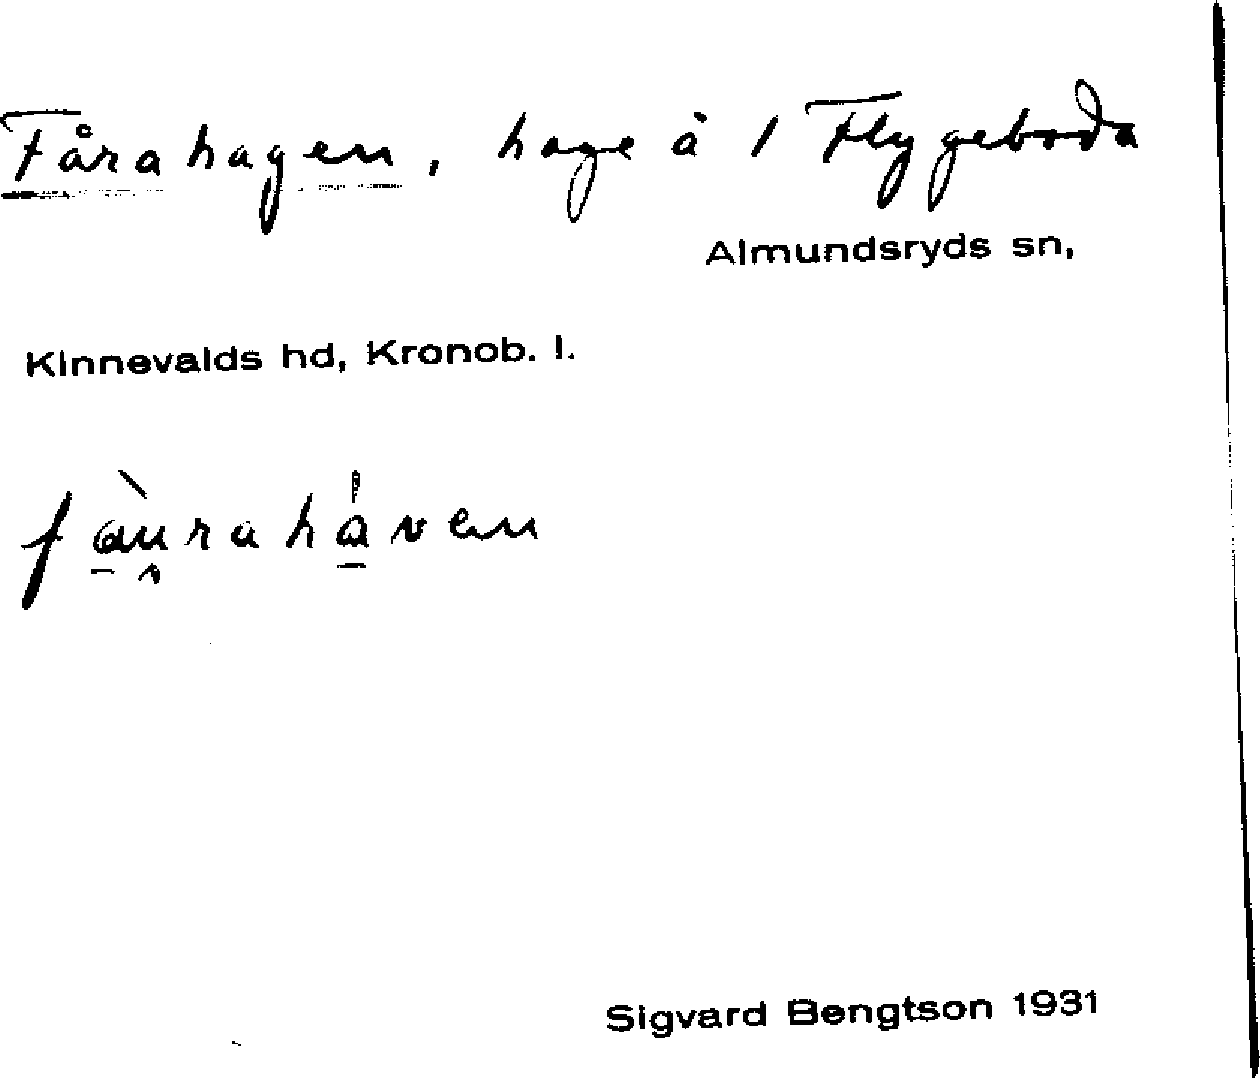 Fårahagen, hage å 1 Flygeboda
Almundsryds sn,
Kinnevalds hd, Kronob. l.
fàu̯raháven
Sigvard Bengtson 1931